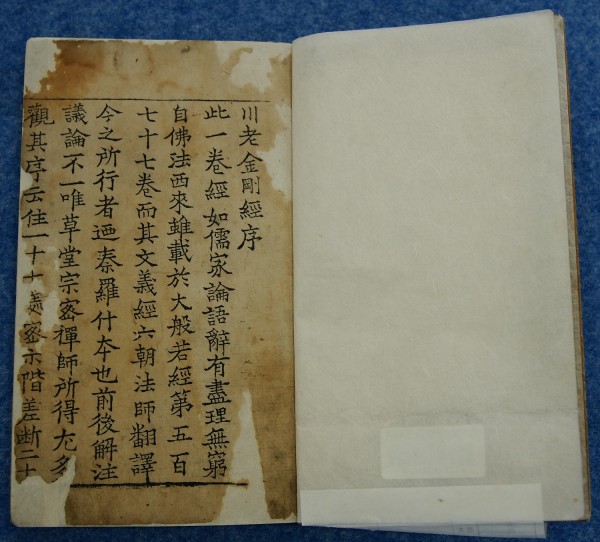 川老金剛經序
此一卷經如儒家論語辭有盡理無窮
自佛法西來雖載於大般若經第五百
七十七卷而其文義經六朝法師翻譯
今之所行者迺秦羅什夲也前後解注
議論不一唯草堂宗密禪師所得尤多
觀其序云住一十處密示階差断二十